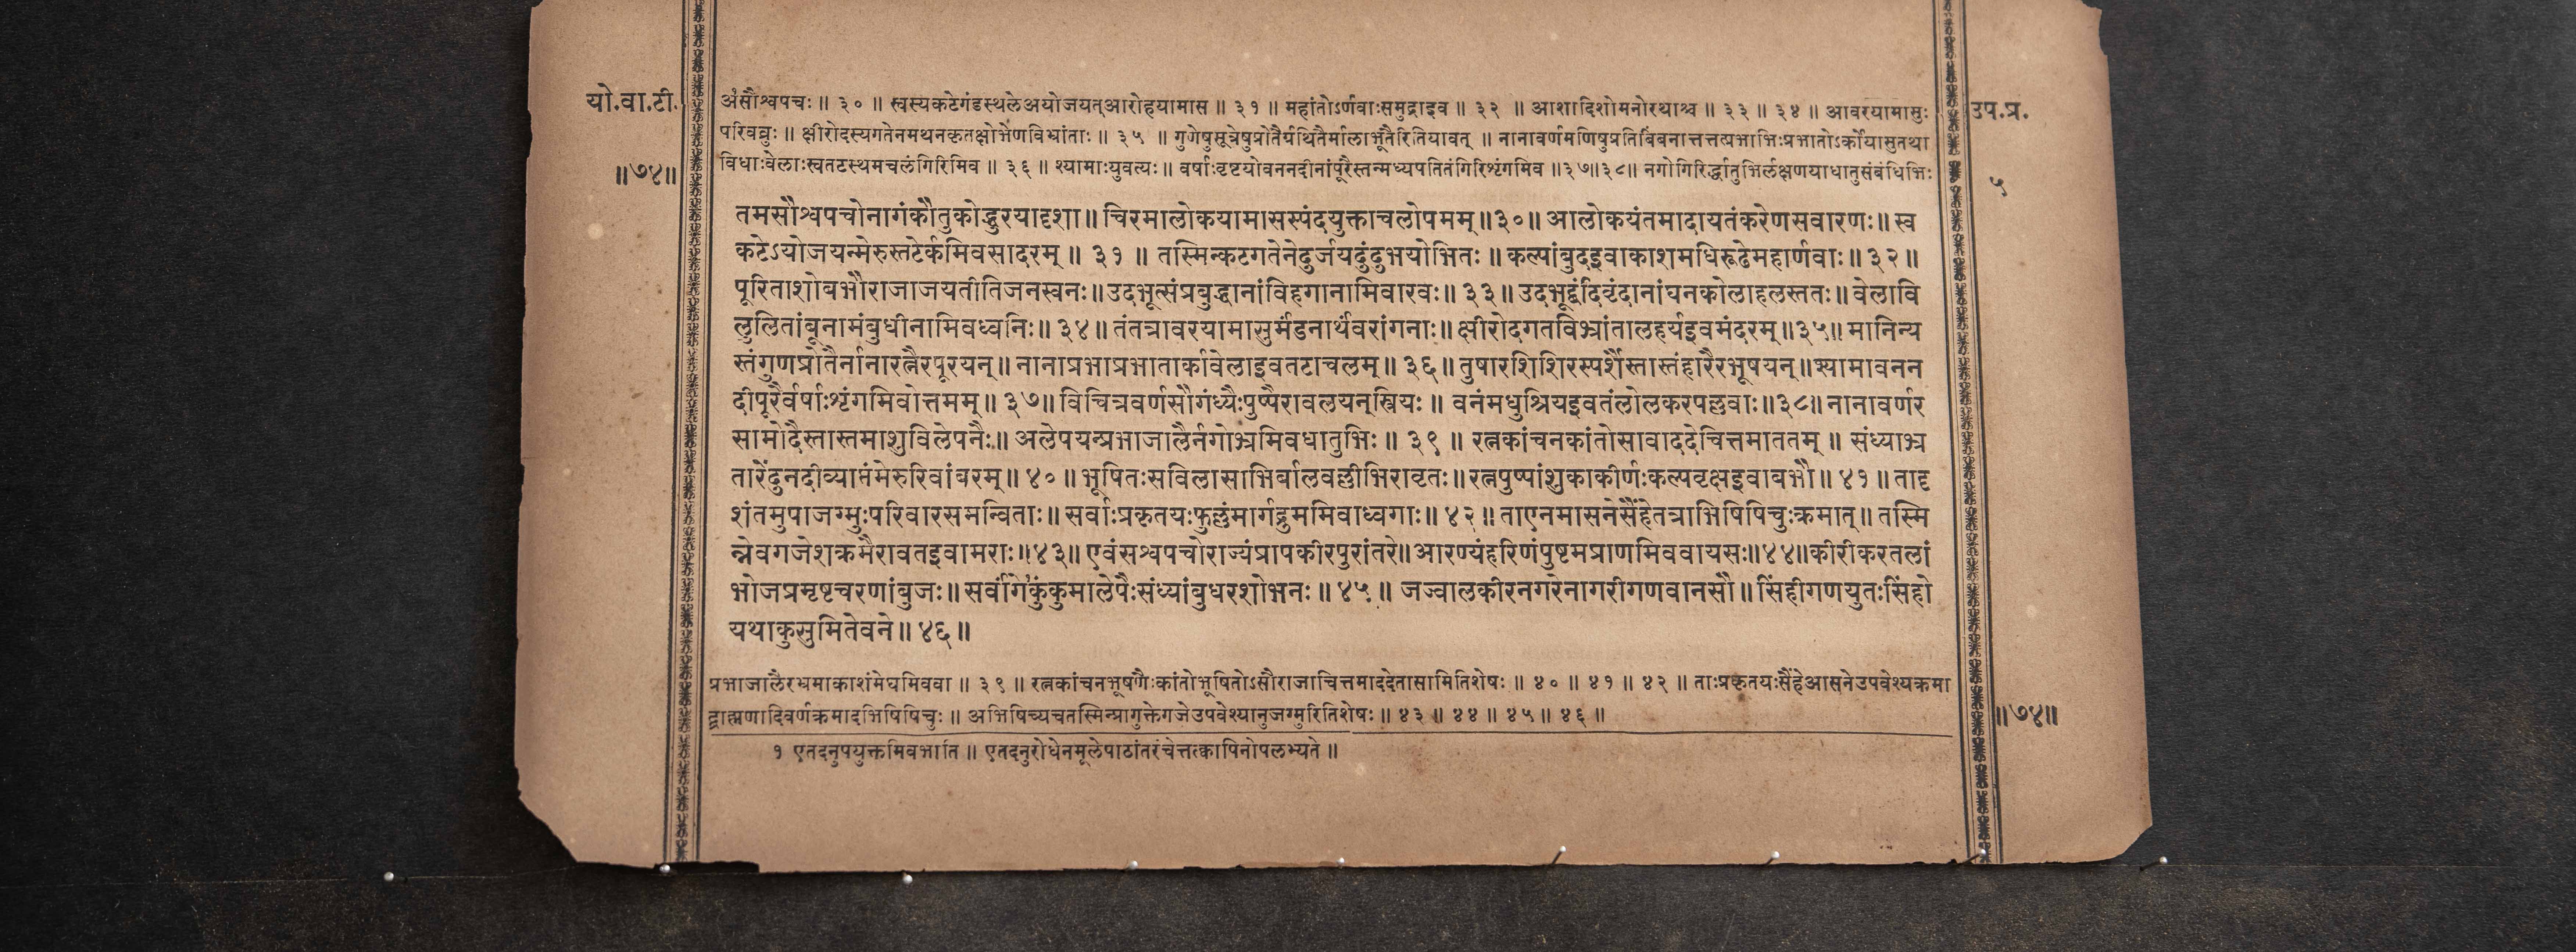 यो.वा.टी.
॥७४॥
अंसौश्वपचः ॥ ३० ॥ स्वस्यकटेगंडस्थलेअयोजयत्आरोहयामास ॥ ३१ ॥ महांतोऽर्णवाःसमुद्राइव ॥ ३२ ॥ आशादिशोमनोरथाश्च ॥ ३३ ॥ ३४ ॥ आवरयामासुः
परिवव्रुः ॥ क्षीरोदस्यगतेनमथनकृतक्षोभेणविभ्रांताः ॥ ३५ ॥ गुणेषुसूत्रेषुप्रोतैर्ग्रथितैर्मालाभूतैरितियावत् ॥ नानावर्णमणिषुप्रतिबिंबनात्तत्तत्प्रभाभिःप्रभातोऽर्कोयासुतथा
विधाःवेलाःस्वतटस्थमचलंगिरिमिव ॥ ३६ ॥ श्यामाःयुवत्यः ॥ वर्षाःवृष्टयोवननदीनांपूरैस्तन्मध्यपतितंगिरिशृंगमिव ॥३७॥३८॥ नगोगिरिर्द्धातुभिर्लक्षणयाधातुसंबंधिभिः
तमसौश्वपचोनागंकौतुकोद्धुरयादृशा॥ चिरमालोकयामासस्पंदयुक्ताचलोपमम्॥३०॥ आलोकयंतमादायतंकरेणसवारणः॥ स्व
कटेऽयोजयन्मेरुस्तटेर्कमिवसादरम् ॥ ३१ ॥ तस्मिन्कटगतेनेदुर्जयदुंदुभयोभितः ॥ कल्पांबुदइवाकाशमधिरूढेमहार्णवाः॥ ३२॥
पूरिताशोबभौराजाजयतीतिजनस्वनः॥उदभूत्संप्रबुद्धानांविहगानामिवारवः॥ ३३॥ उदभूद्वंदिवृंदानांघनकोलाहलस्ततः॥ वेलावि
लुलितांबूनामंबुधीनामिवध्वनिः॥ ३४॥ तंतत्रावरयामासुर्मंडनार्थंवरांगनाः॥ क्षीरोदगतविभ्रांतालहर्यइवमंदरम्॥३५॥ मानिन्य
स्तंगुणप्रोतैर्नानारत्नैरपूरयन्॥ नानाप्रभाप्रभातार्कावेलाइवतटाचलम्॥ ३६॥ तुषारशिशिरस्पर्शैस्तास्तंहारैरभूषयन्॥श्यामावनन
दीपूरैर्वर्षाःशृंगमिवोत्तमम्॥ ३७॥ विचित्रवर्णसौगंध्यैःपुष्पैरावलयन्स्त्रियः॥ वनंमधुश्रियइवतंलोलकरपल्लवाः॥३८॥ नानावर्णर
सामोदैस्तास्तमाशुविलेपनैः॥ अलेपयन्प्रभाजालैर्नगोभ्रमिवधातुभिः॥ ३९ ॥ रत्नकांचनकांतोसावाददेचित्तमाततम् ॥ संध्याभ्र
तारेंदुनदीव्याप्तंमेरुरिवांबरम्॥ ४०॥ भूषितःसविलासाभिर्बालवल्लीभिरावृतः॥रत्नपुष्पांशुकाकीर्णःकल्पवृक्षइवाबभौ॥ ४१॥ तादृ
शंतमुपाजग्मुःपरिवारसमन्विताः॥ सर्वाःप्रकृतयःफुल्लंमार्गद्रुममिवाध्वगाः॥ ४२॥ ताएनमासनेसैंहेतत्राभिषिषिचुःक्रमात्॥ तस्मि
न्नेवगजेशक्रमैरावतइवामराः॥४३॥ एवंसश्वपचोराज्यंप्रापकीरपुरांतरे॥आरण्यंहरिणंपुष्टमप्राणमिववायसः॥४४॥कीरीकरतलां
भोजप्रमृष्टचरणांबुजः॥ सर्वांगेकुंकुमालेपैःसंध्यांबुधरशोभनः॥ ४५॥ जज्वालकीरनगरेनागरीगणवानसौ॥ सिंहीगणयुतःसिंहो
यथाकुसुमितेवने॥ ४६॥
प्रभाजालैरभ्रमाकाशंमेघमिववा ॥ ३९ ॥ रत्नकांचनभूषणैःकांतोभूषितोऽसौराजाचित्तमाददेतासामितिशेषः ॥ ४० ॥ ४१ ॥ ४२ ॥ ताःप्रकृतयःसैंहेआसनेउपवेश्यक्रमा
द्ब्राह्मणादिवर्णक्रमादभिषिषिचुः ॥ अभिषिच्यचतस्मिन्प्रागुक्तेगजेउपवेश्यानुजग्मुरितिशेषः ॥ ४३ ॥ ४४ ॥ ४५ ॥ ४६ ॥
१ एतदनुपयुक्तमिवभाति ॥ एतदनुरोधेनमूलेपाठांतरंचेत्तत्कापिनोपलभ्यते ॥
उप.प्र.
५
॥७४॥